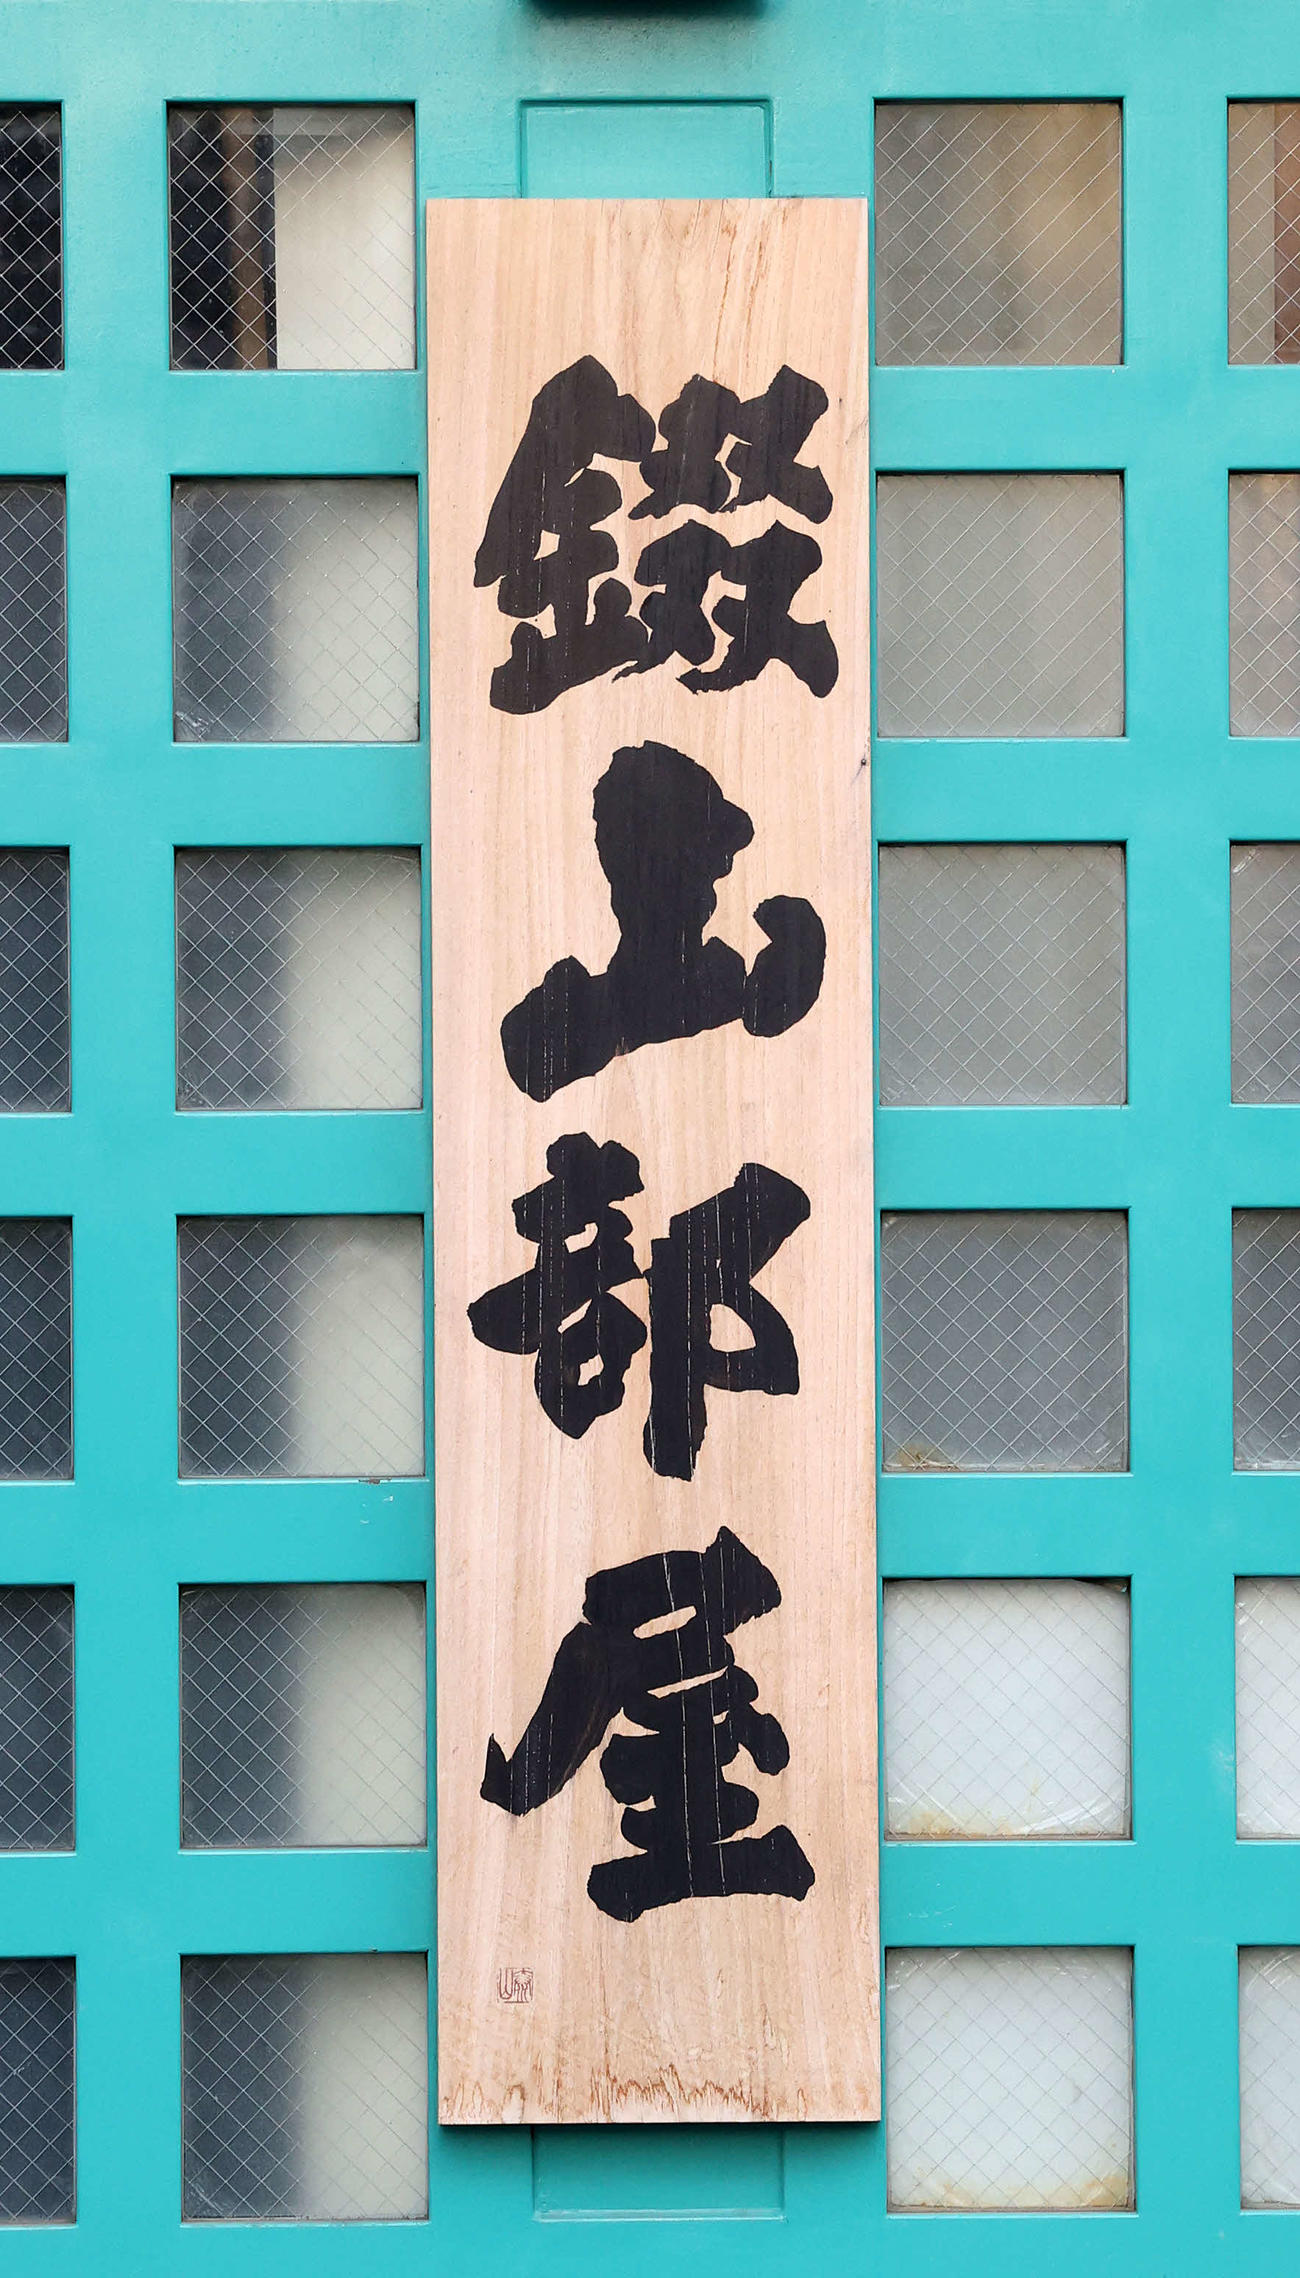 錣山部屋